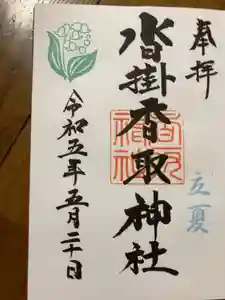 奉拝
立夏
沓掛香取神社
令和五年五月二十日